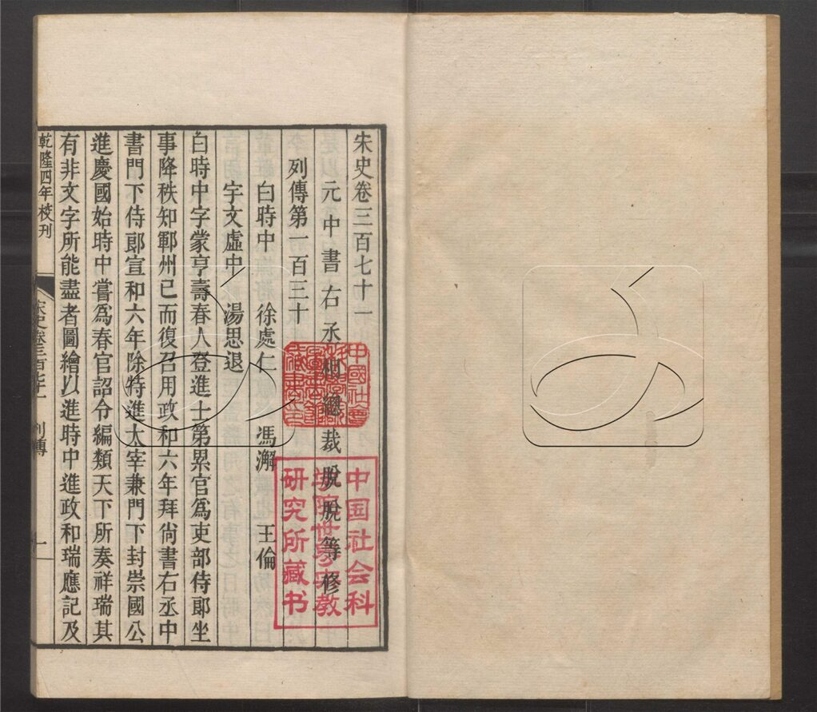 宋史卷三百七十一
元中書右丞相總裁脫脫等修
列傳第一百三十
白時中　徐處仁　馮澥　王倫
宇文虛中　湯思退
白時中字蒙亨壽春人登進士第累官爲吏部侍郎坐
事降秩知鄆州已而復召用政和六年拜尚書右丞中
書門下侍郎宣和六年除特進太宰兼門下封崇國公
進慶國始時中嘗爲春官詔令編類天下所奏祥瑞其
有非文字所能盡者圖繪以進時中進政和瑞應記及
乾隆四年校刊
宋史卷三百七十一　列傳　一
中国社会科
学院世界宗教
研究所藏书